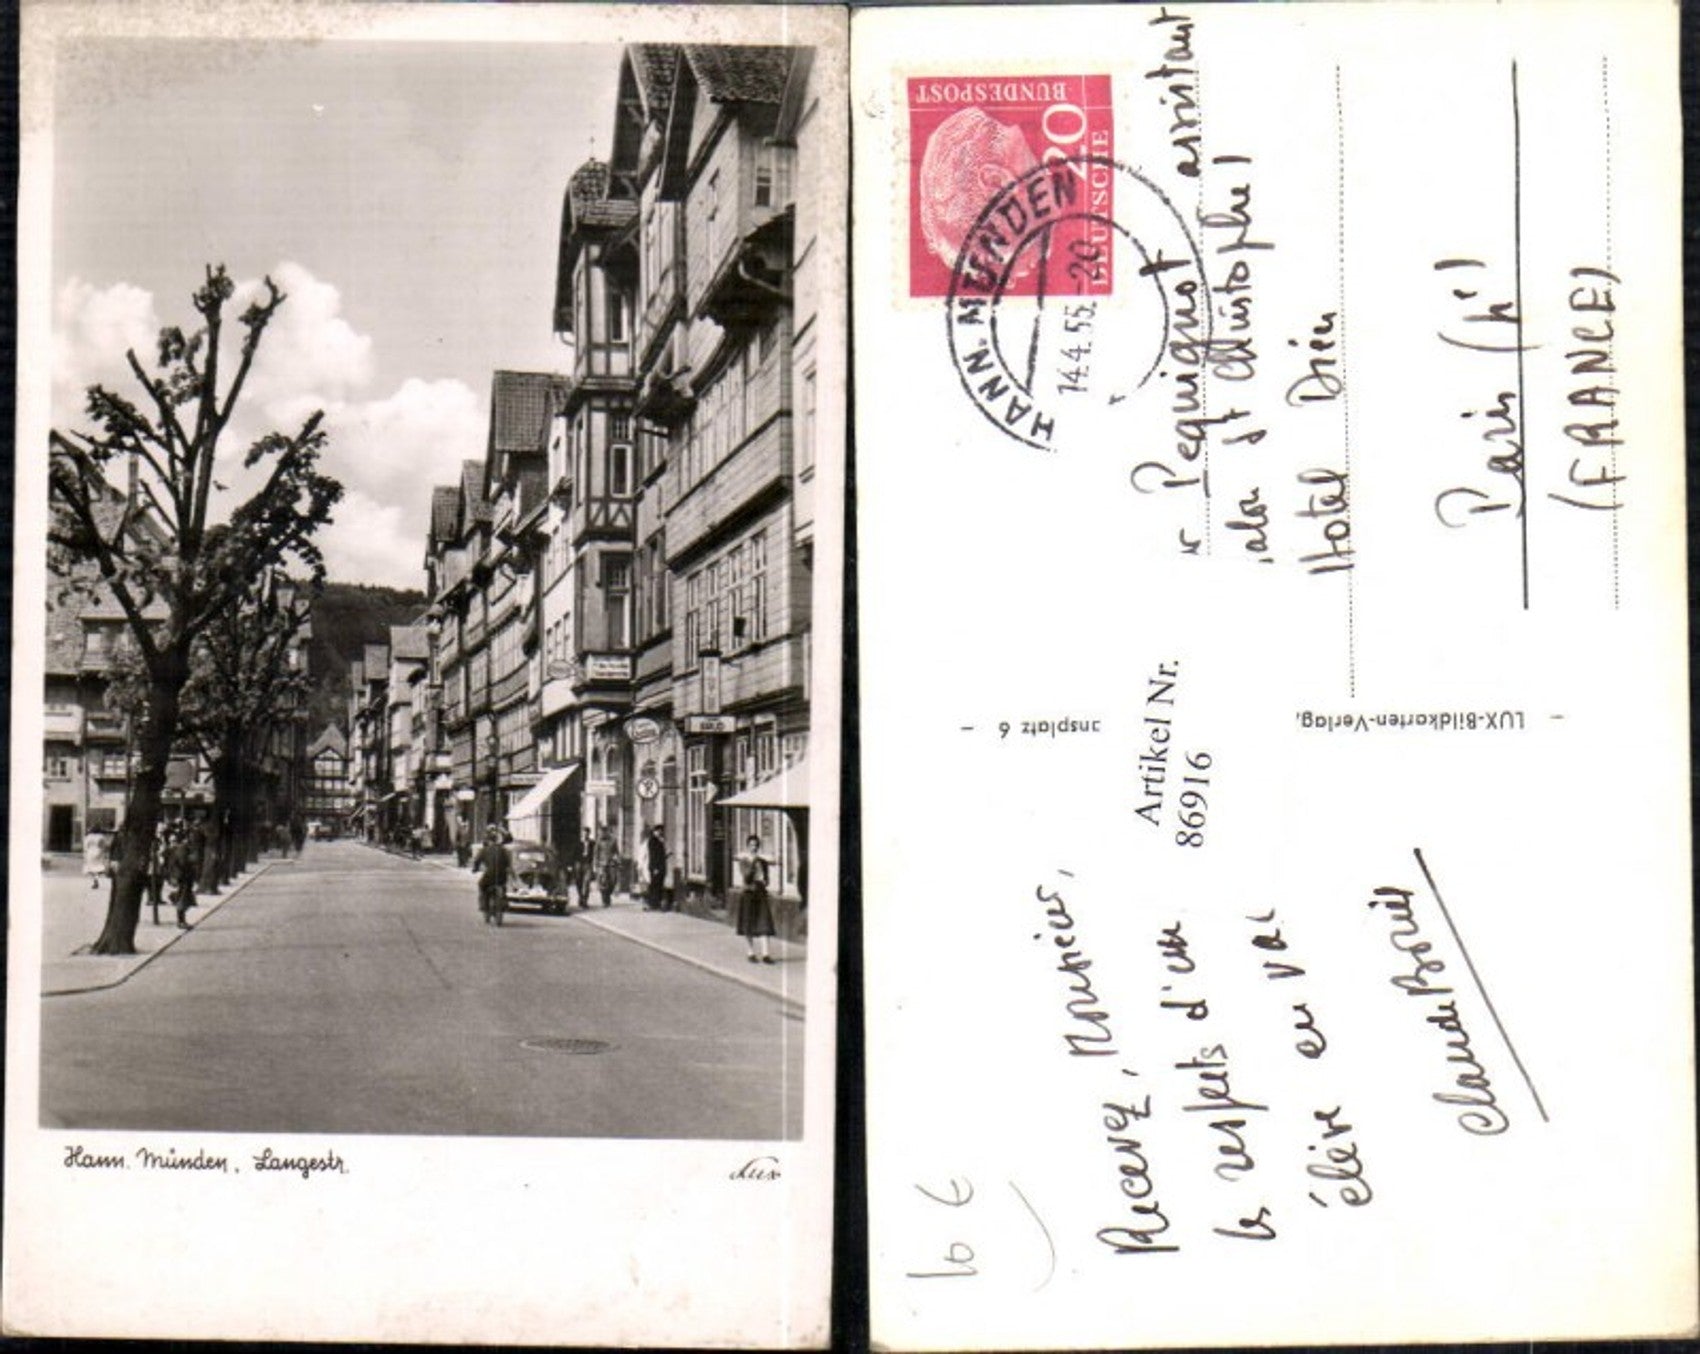 Hann. Münden, Langestr.
Lux
DEUTSCHE
BUNDESPOST
20
HANN. MÜNDEN
14.4.55.-20
Pequignot assistant
St Christophe
Hotel Dieu
Paris
(FRANCE)
LUX-Bildkarten-Verlag,
ansplatz 6 -
Artikel Nr.
86916
Recevez, Monsieur,
les respects d'un
élève en va
Claude
10 €